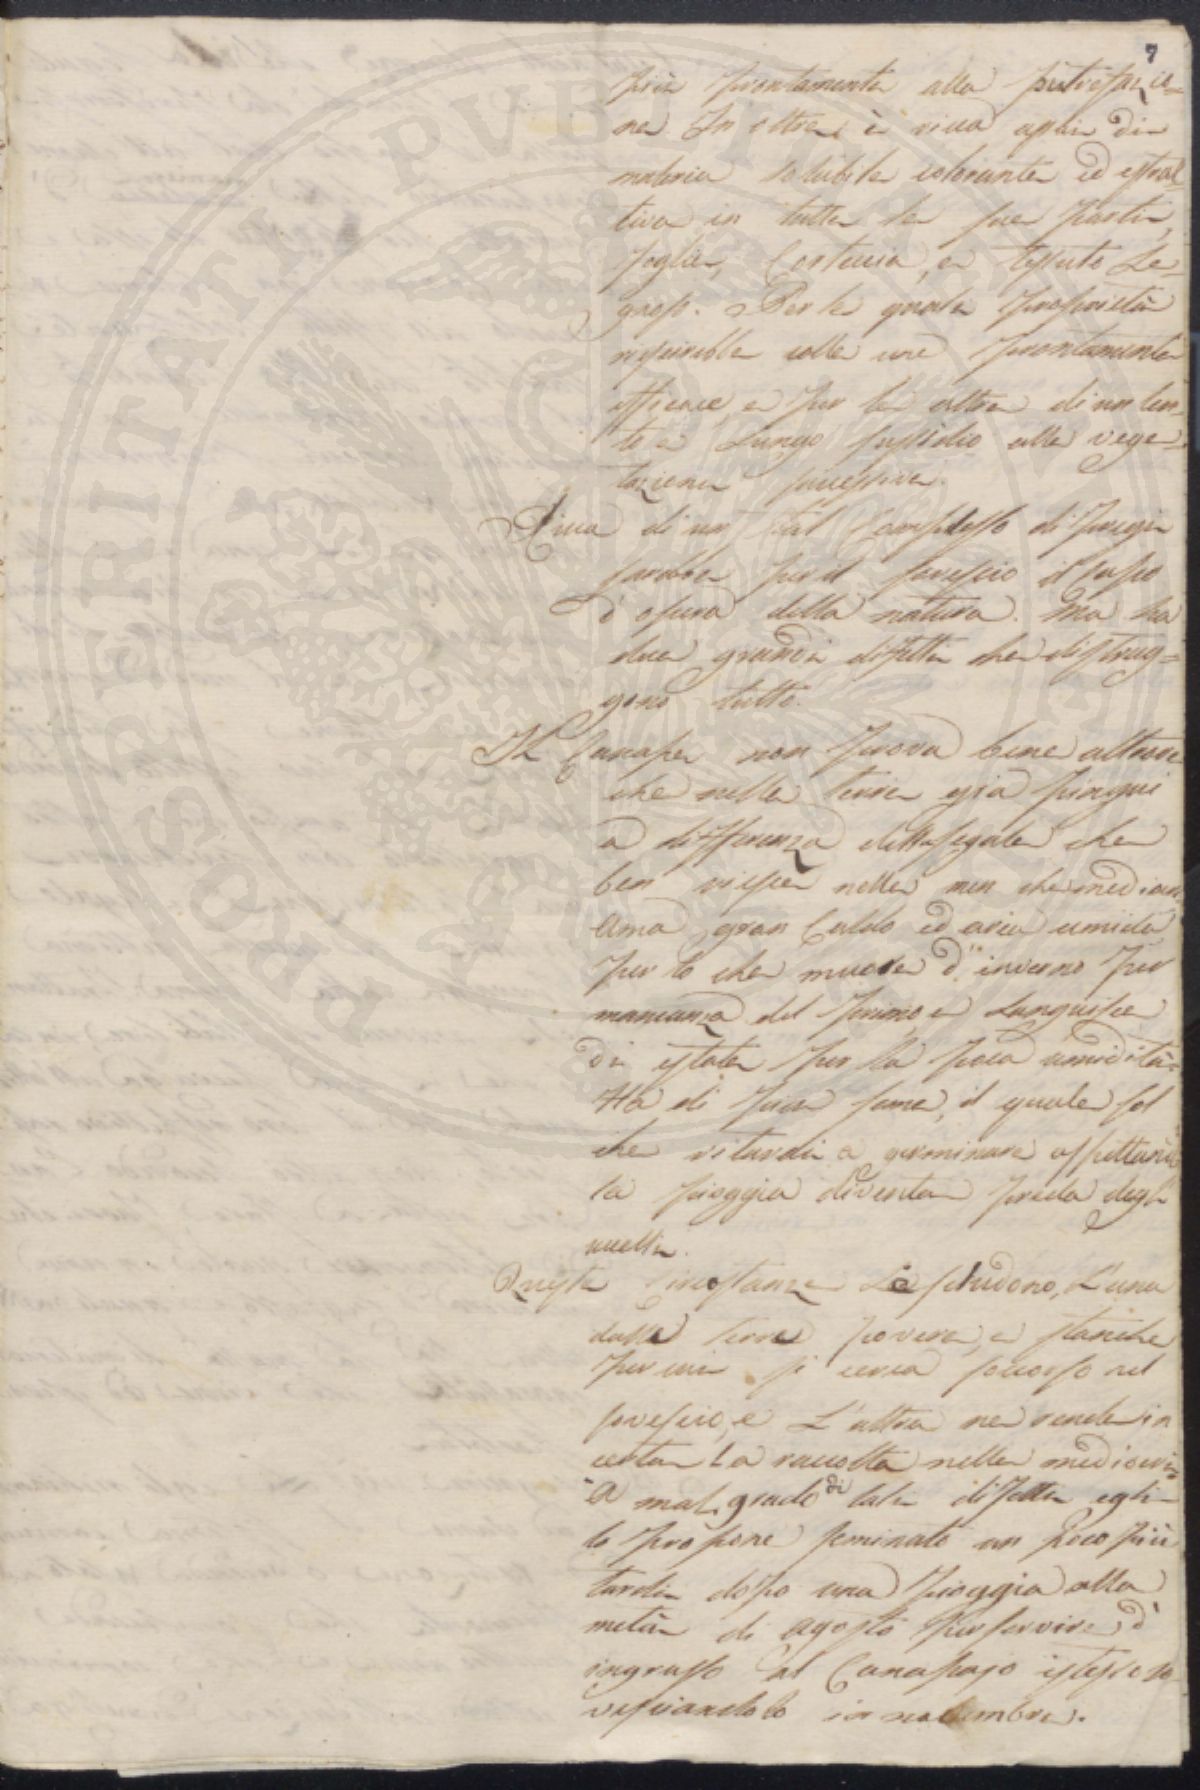 7
più prontamente alla putrefazio=
ne. In oltre è ricca assai di
materia solubile colorante ed estrat=
tiva in tutte le sue parti,
foglie, Corteccia, e tessuto Le=
gnoso. Per le quali proprietà
riuscirebbe colle une prontamente
efficace, e per le altre di un len=
to e Lungo sussidio alla vege=
tazione successiva.
Ricca di un tal Complesso di pregi
sarebbe per il sovescio il
d'opera della natura. Ma ha
due grandi difetti che distrug=
gono tutto.
Il Canape non prova bene altrove
che nelle terre già pingui
a differenza della segale che
ben riesce nelle men che mediocri
Ama gran Caldo ed aria umida
per lo che muore d'inverno per
mancanza del primo, e Languisce
di estate per la poca umidità=
Ha di più seme, il quale sol
che ritardi a germinare aspettando
la pioggia diventa preda degli
uccelli.
Queste Circostanze Lo escludono, L'una
dalle terre povere, e stanche
per cui si cerca soccorso nel
sovescio, e L'altra ne rende in
certa La raccolta nelle mediocri=
A mal grado di tali difetti egli
lo propone seminato un poco più
tardi dopo una pioggia alla
metà di agosto per servire d'
ingrasso al Canapajo istesso so
vesciandolo in novembre.
PVBLICAE
PROSPERITATI